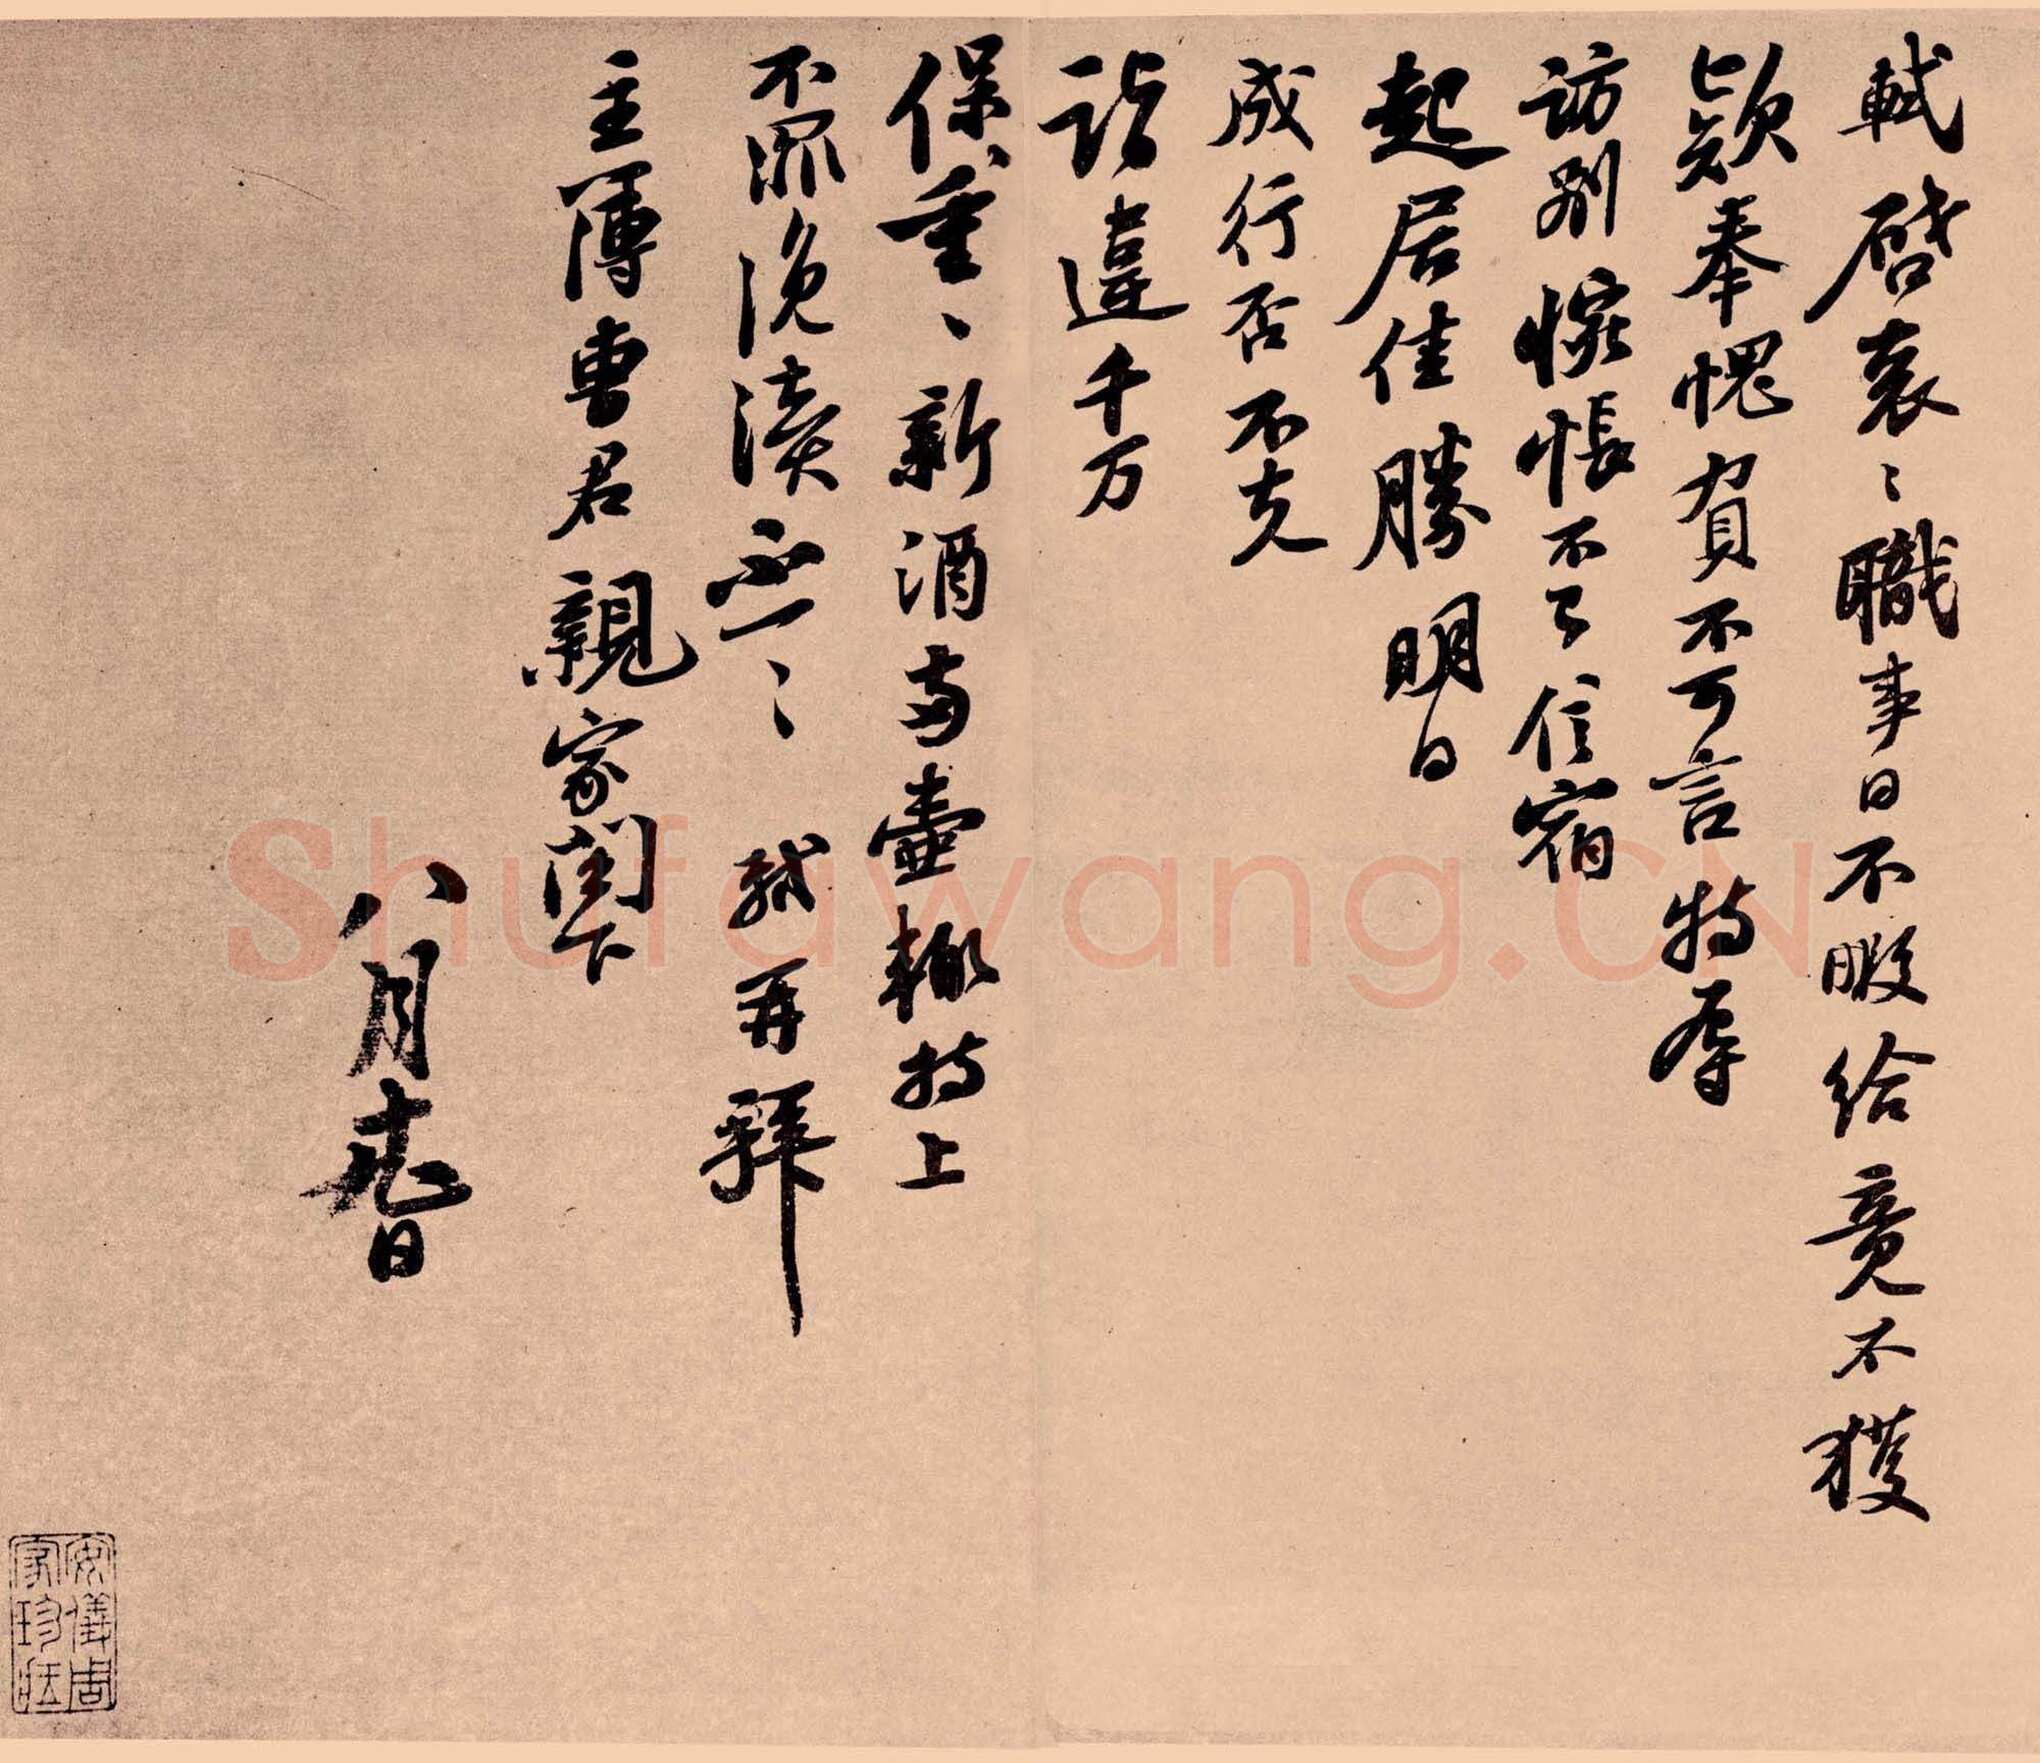 軾啓衰衰職事日不暇給竟不獲
款奉愧負不可言特辱
訪別惋悵不已信宿
起居佳勝明日
成行否不克
詣違千万
保重重新酒兩壺輒持上
不罪浼瀆不一一軾再拜
主簿曹君親家閤下
八月廿九日
安儀周
家珍藏
Shufawang.CN